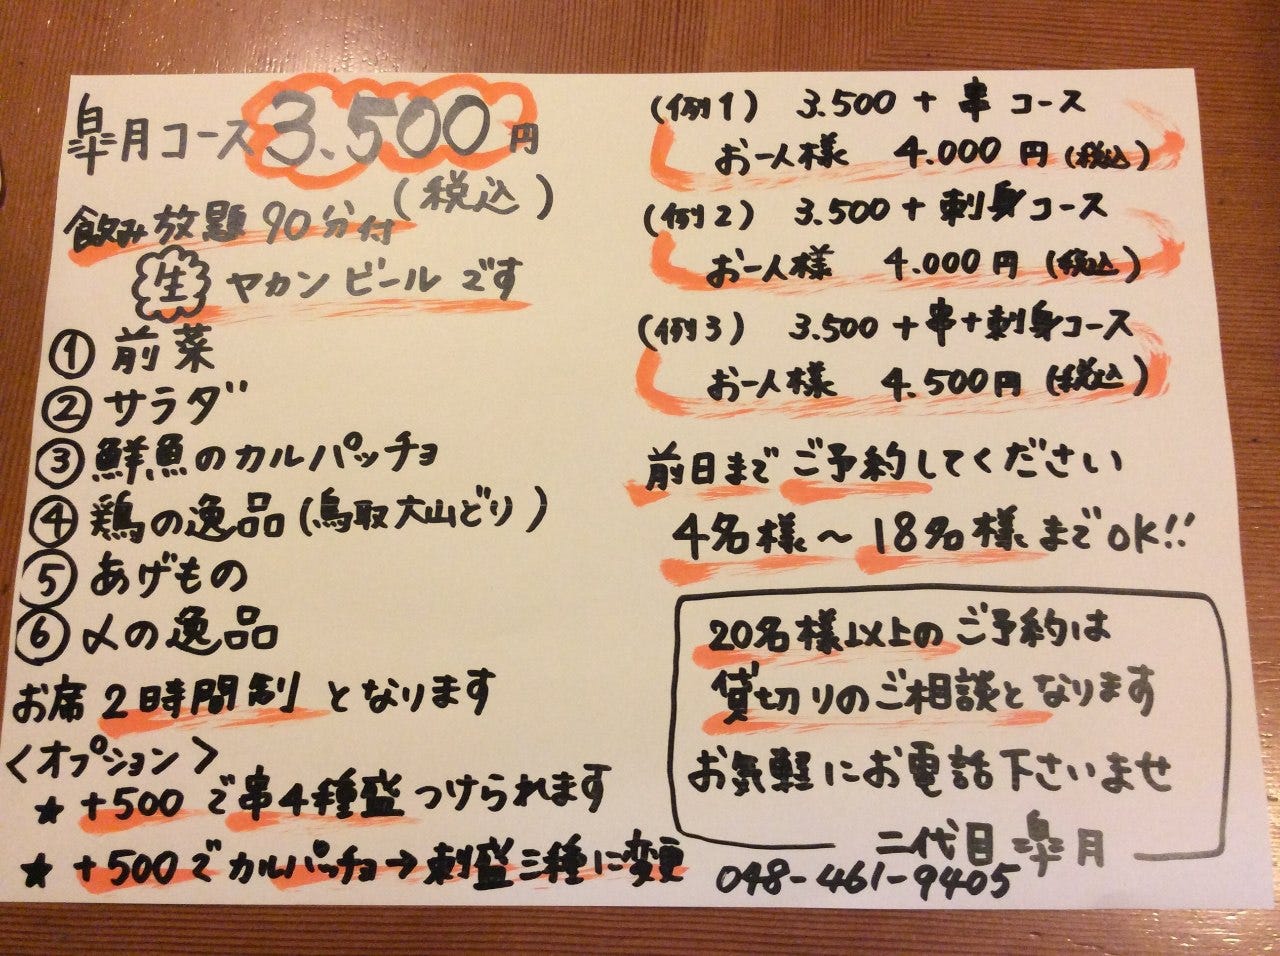 皐月コース 3.500円
(税込)
飲み放題 90分付
生 ヤカンビールです
① 前菜
② サラダ
③ 鮮魚のカルパッチョ
④ 鶏の逸品(鳥取大山どり)
⑤ あげもの
⑥ 〆の逸品
お席 2時間制 となります
<オプション>
★ +500 で串4種盛つけられます
★ +500でカルパッチョ→刺盛三種に変更
(例1) 3.500 + 串コース
お一人様 4.000円(税込)
(例2) 3.500 + 刺身コース
お一人様 4.000円(税込)
(例3) 3.500 + 串+刺身コース
お一人様 4.500円(税込)
前日までご予約してください
4名様〜18名様までOK!!
20名様以上のご予約は
貸切りのご相談となります
お気軽にお電話下さいませ
二代目 皐月
048-461-9405